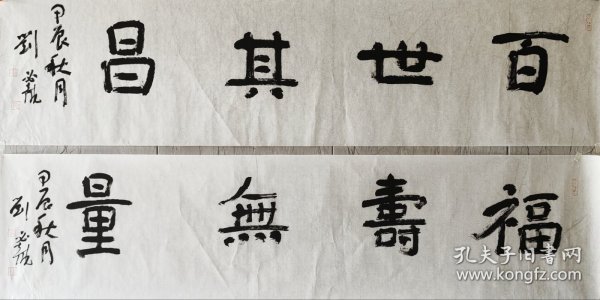 百世其昌
甲辰秋月
劉
福壽無量
甲辰秋月
劉
孔夫子旧书网
www.kongfz.com